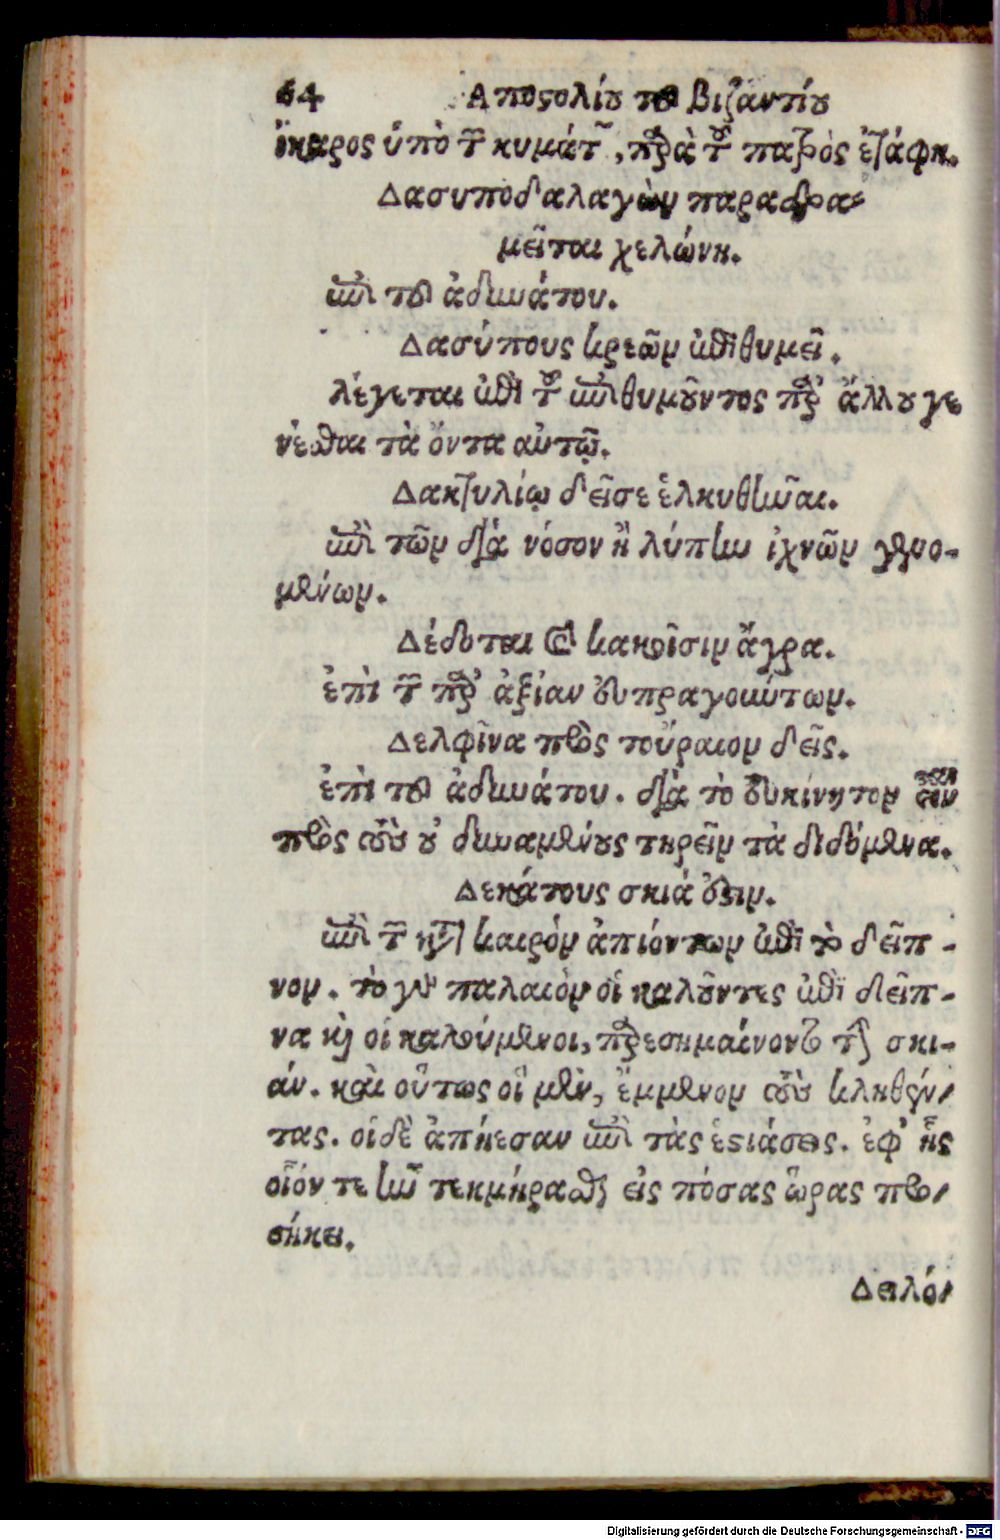 64 Αποστολίου τοῦ βιζαντίου
ἴκαρος ὑπὸ τῶν κυμάτων, παρὰ τοῦ πατρὸς ἐτάφη.
Δασυποδαλαγὼν παραδρα-
μεῖται χελώνη.
ἐπὶ τοῦ ἀδυνάτου.
Δασύπους κρεῶν ἐπιθυμεῖ.
λέγεται ἐπὶ τοῦ ἐπιθυμοῦντος παρ' ἄλλου γε
νέσθαι τὰ ὄντα αὐτῷ.
Δακτυλίῳ δεῖσε ἑλκυθῆναι.
ἐπὶ τῶν διὰ νόσον ἢ λύπην ἰχνῶν γενο-
μένων.
Δέδοται καὶ κακοῖσιν ἄγρα.
ἐπὶ τῶν παρ' ἀξίαν εὐπραγούντων.
Δελφῖνα πρὸς τοὔραιον δεῖς.
ἐπὶ τοῦ ἀδυνάτου. διὰ τὸ εὐκίνητον
πρὸς τοὺς οὐ δυναμένους τηρεῖν τὰ διδόμενα.
Δεκάτους σκιά ἐστιν.
ἐπὶ τῶν κατὰ καιρὸν ἀπιόντων ἐπὶ τὸ δεῖπ-
νον. τὸ γὰρ παλαιὸν οἱ καλοῦντες ἐπὶ δεῖπ-
να καὶ οἱ καλούμενοι, παρεσημαίνοντο τὴν σκι-
άν. καὶ οὕτως οἱ μὲν, ἔμμενον τοὺς κληθέν-
τας. οἱ δὲ ἀπήεσαν ἐπὶ τὰς ἑστιάσεις. ἐφ' ἧς
οἷόν τε ἦν τεκμήρασθαι εἰς πόσας ὥρας προ-
σήκει.
Δειλό-
Digitalisierung gefördert durch die Deutsche Forschungsgemeinschaft - DFG